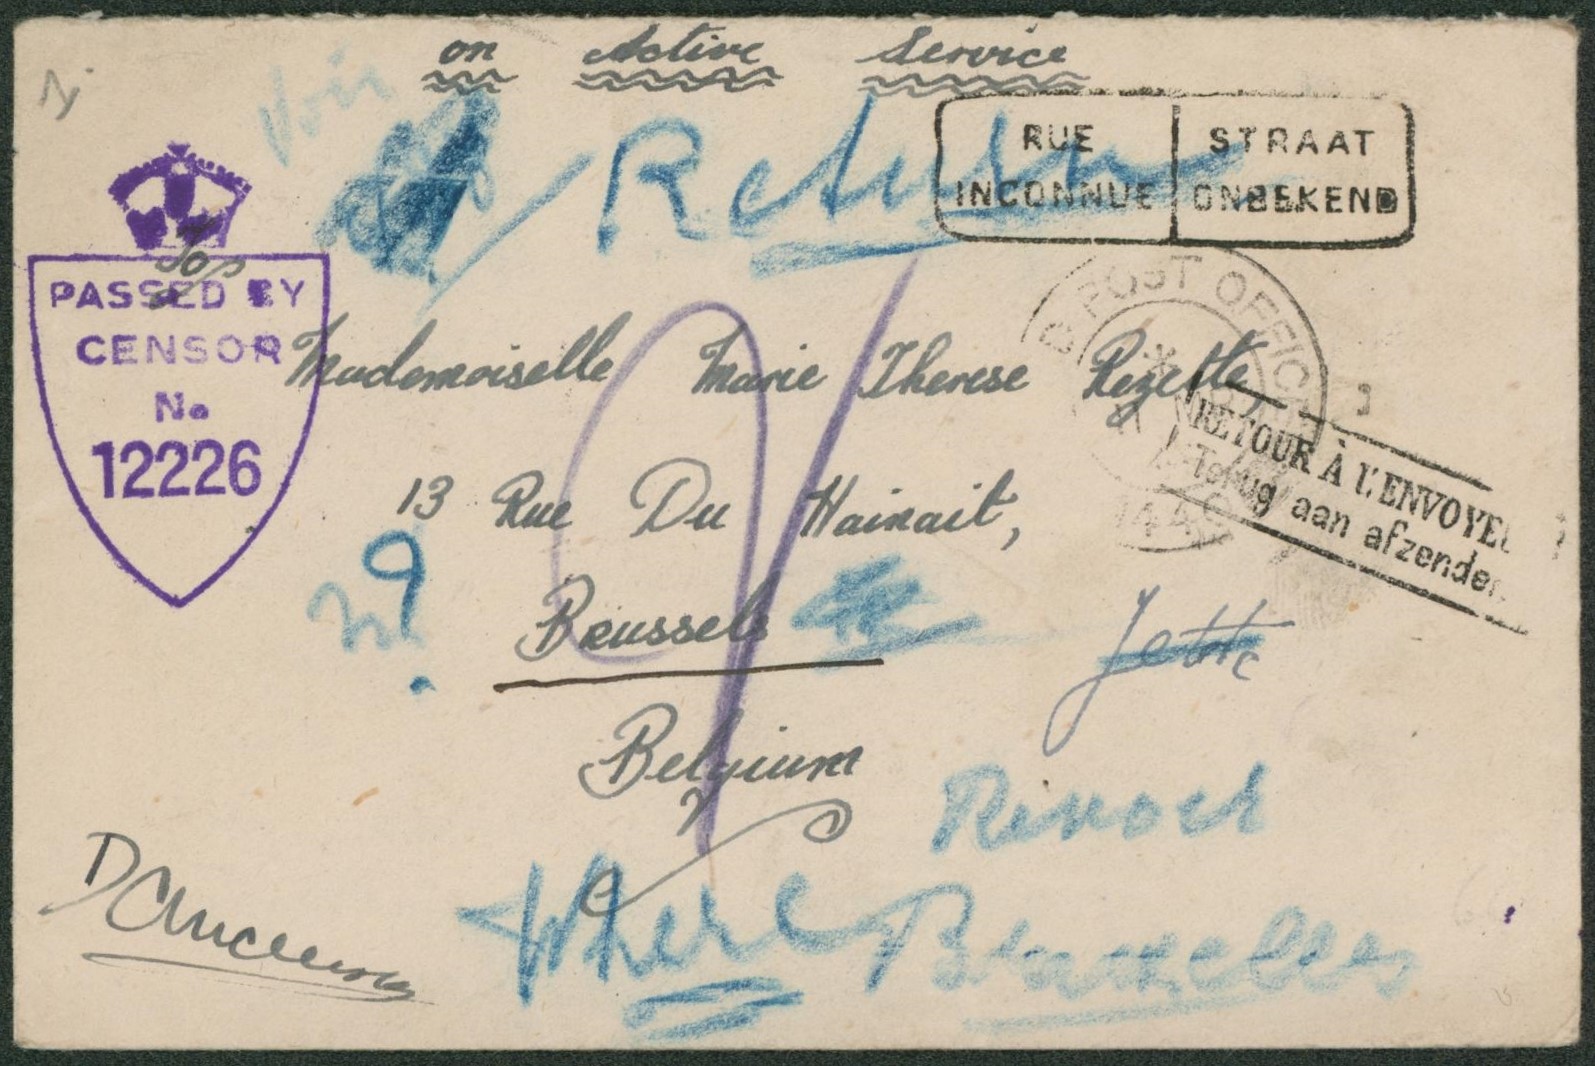 on Active Service
Voir
Return
RUE INCONNUE
STRAAT ONBEKEND
To
PASSED BY
CENSOR
No
12226
POST OFFICE
Mademoiselle Marie Therese Rezette,
RETOUR À L'ENVOYEU
Terug aan afzender
13 Rue Du Hainait,
?
Brussels
Jette
Belgium
Where Bruxelles